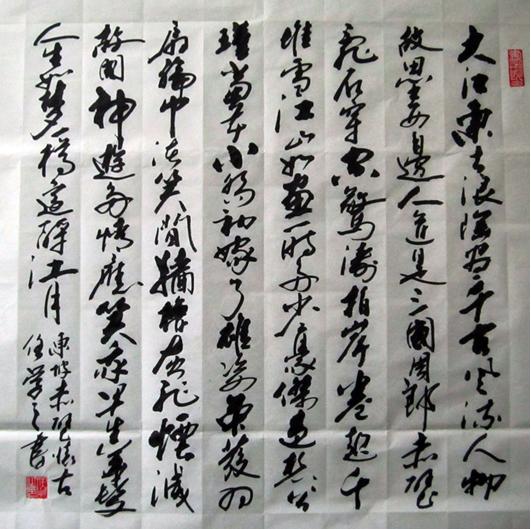 大江東去浪淘盡千古風流人物
故壘西邊人道是三國周郎赤壁
亂石穿空驚濤拍岸卷起千
堆雪江山如畫一時多少豪傑遙想公
瑾當年小喬初嫁了雄姿英發羽
扇綸巾談笑間檣櫓灰飛煙滅
故國神遊多情應笑我早生華髮
人生如夢一樽還酹江月
東坡赤壁懷古
學之書